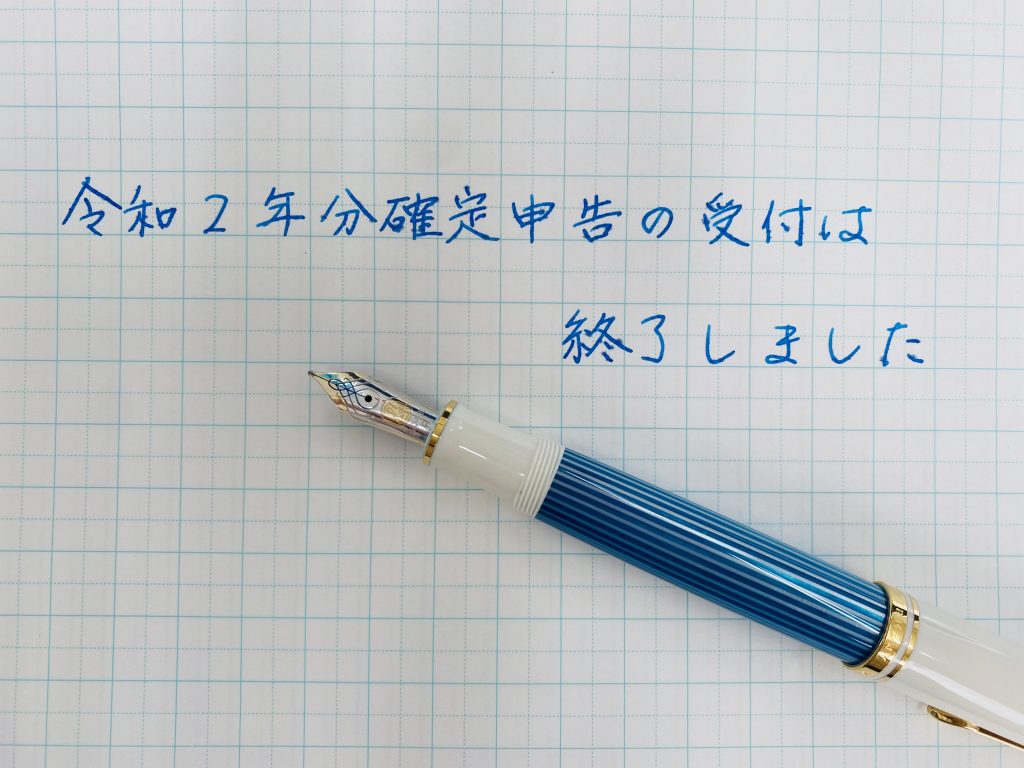 令和2年分確定申告の受付は
終了しました